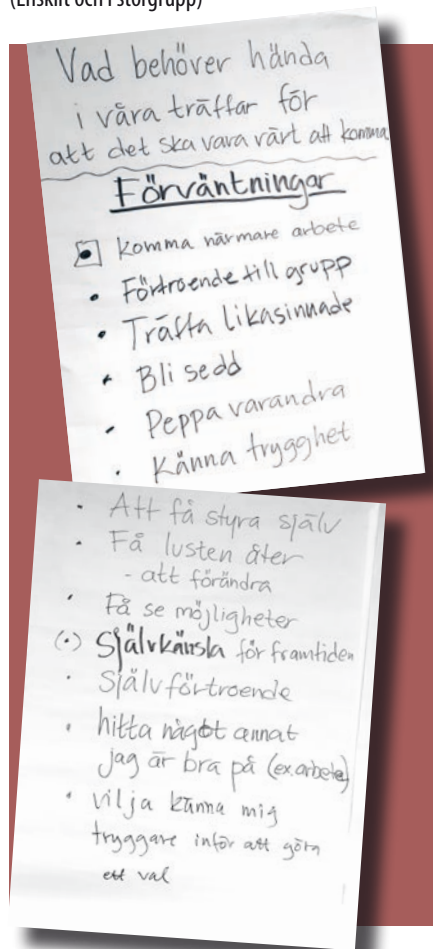 (Enskilt och i storgrupp)
Vad behöver hända
i våra träffar för
att det ska vara värt att komma
Förväntningar
• Komma närmare arbete
• Förtroende till grupp
• Träffa likasinnade
• Bli sedd
• Peppa varandra
• Känna trygghet
• Att få styra själv
• Få lusten åter
- att förändra
• Få se möjligheter
(•) Självkänsla för framtiden
• Självförtroende
• hitta något annat
jag är bra på (ex. arbete)
• vilja känna mig
tryggare inför att göra
ett val